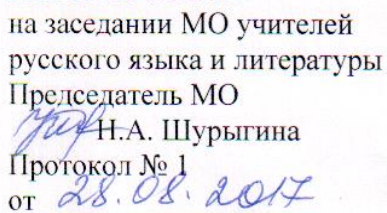 на заседании МО учителей
русского языка и литературы
Председатель МО
Н.А. Шурыгина
Протокол № 1
от 28.08.2017